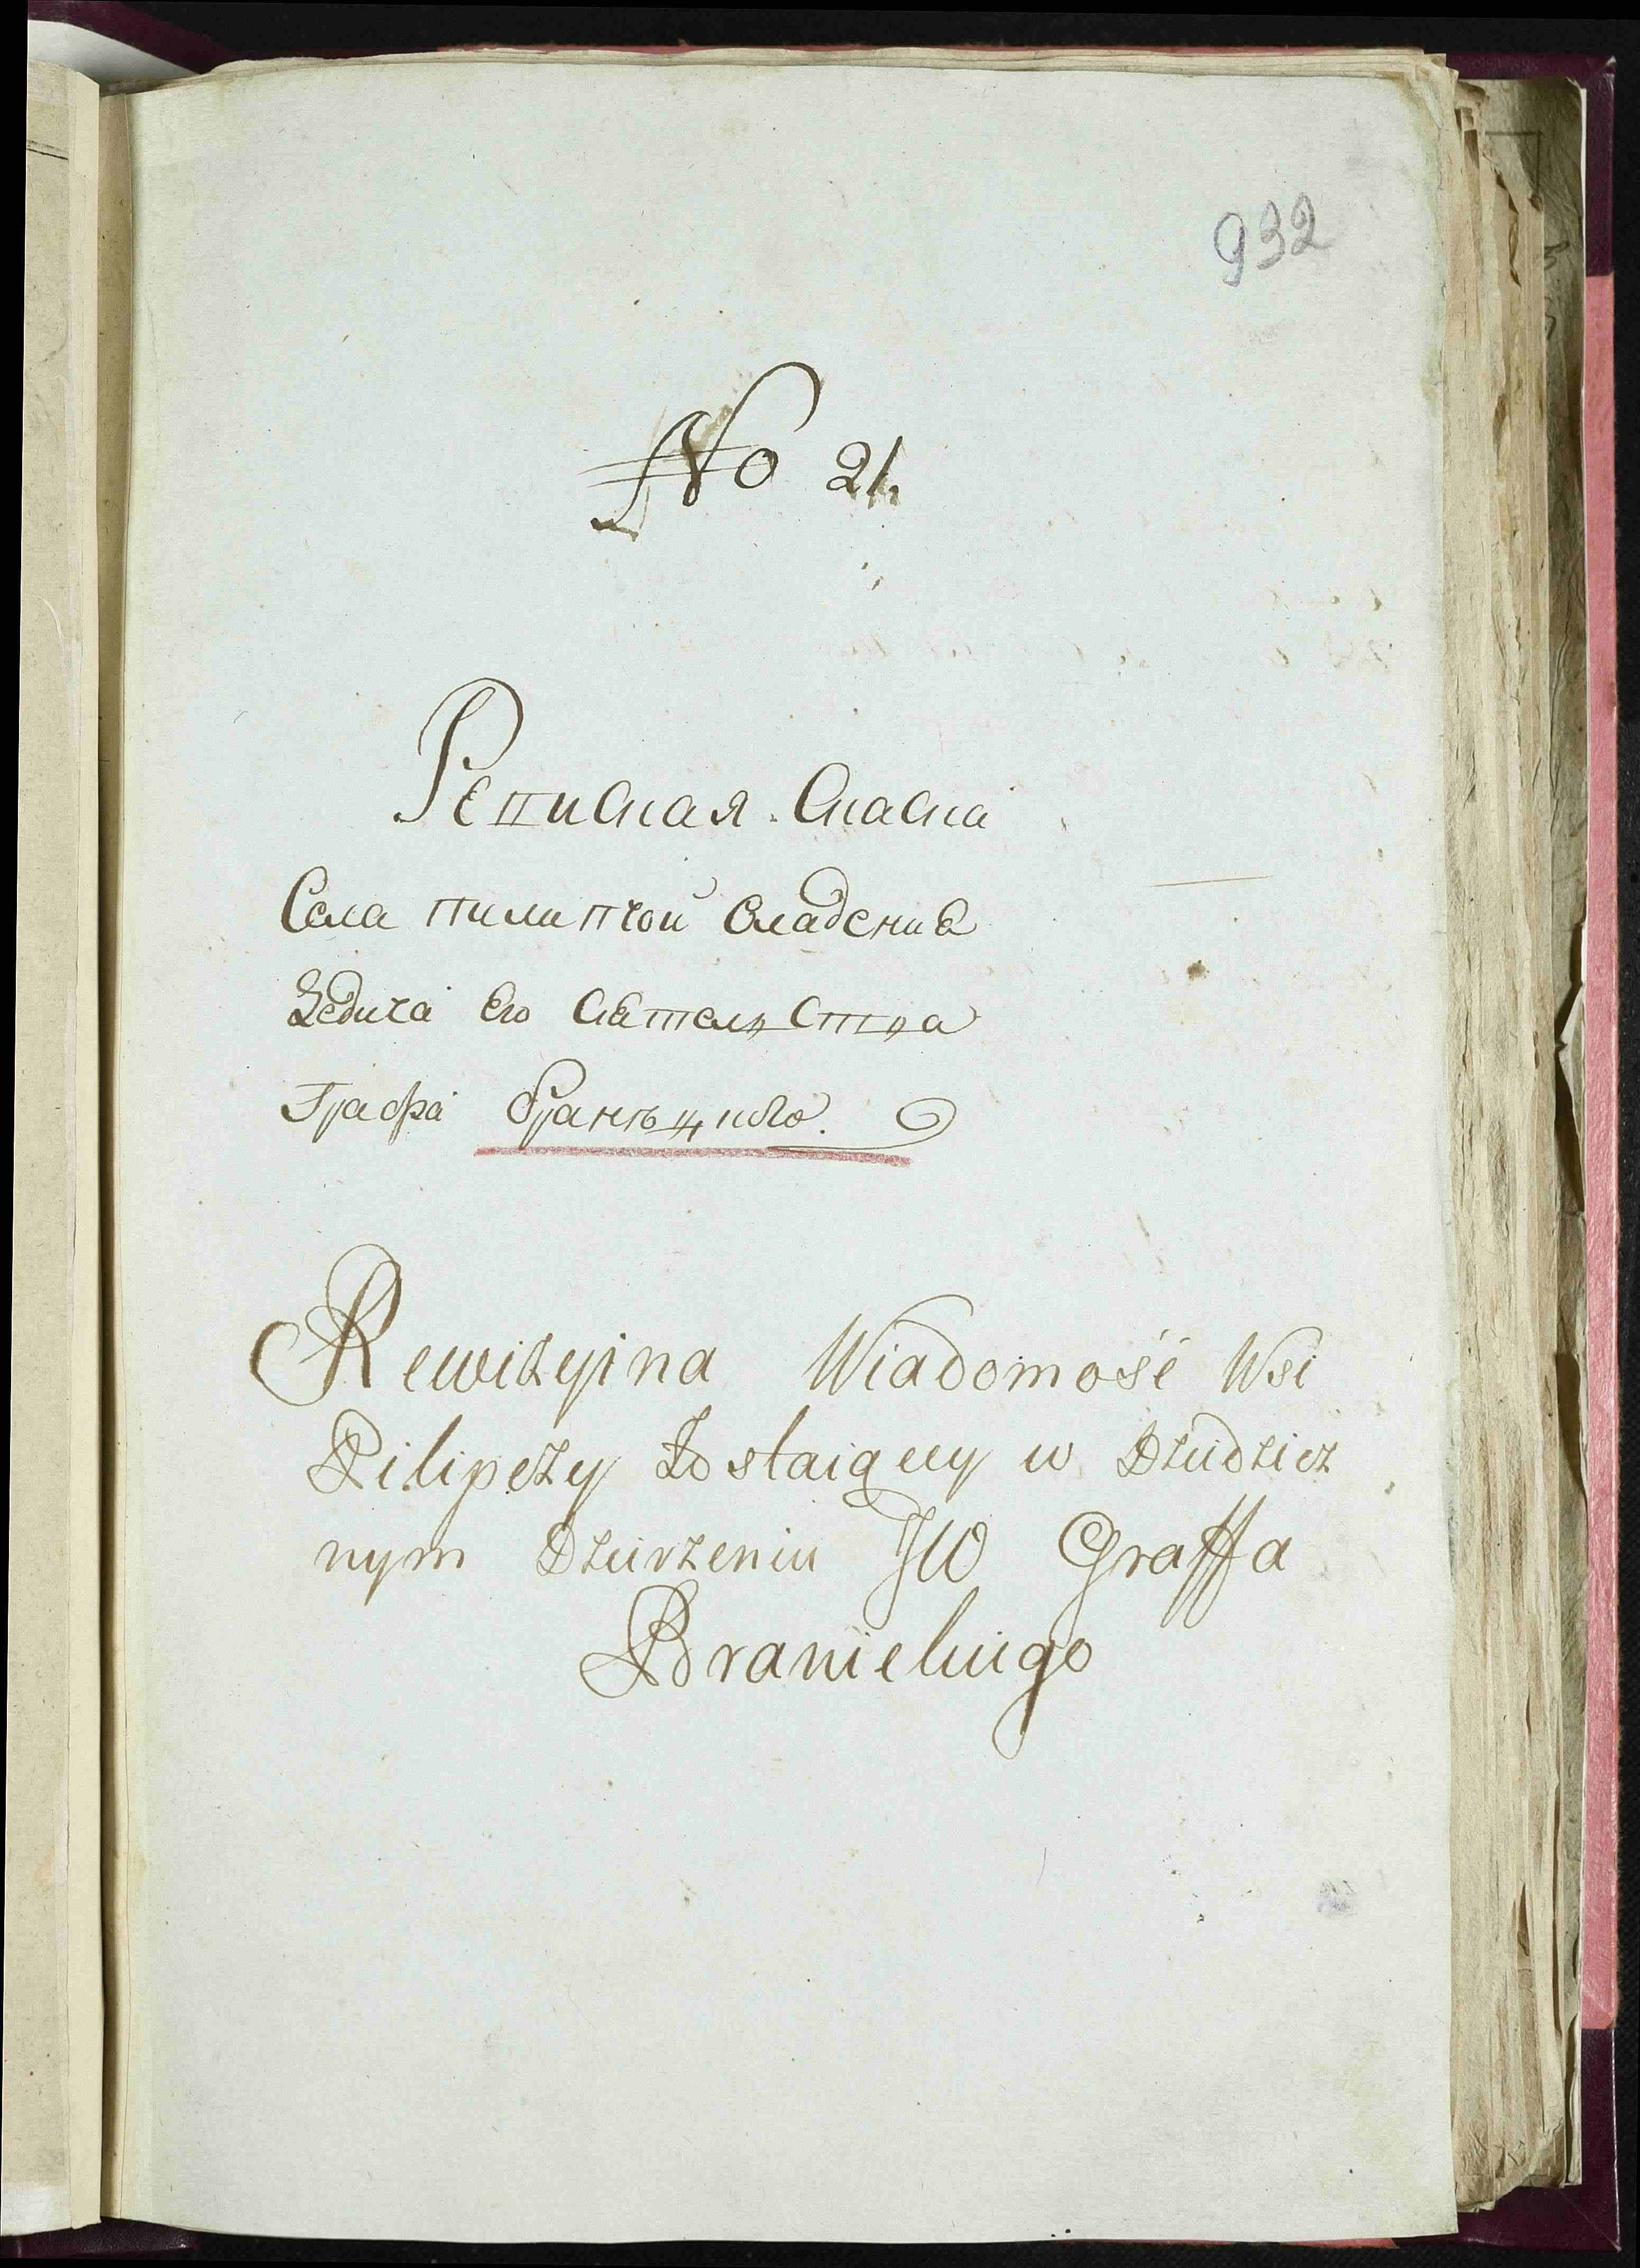 932
No 21.
Ревизская Скаска
Села пилипчой владения
Дедича Его Сиятельства
Графа браницкаго.
Rewizyina Wiadomość Wsi
Pilipczy Zostaiący w Dziedzicz
nym Dzierżeniu JW Graffa
Branickiego